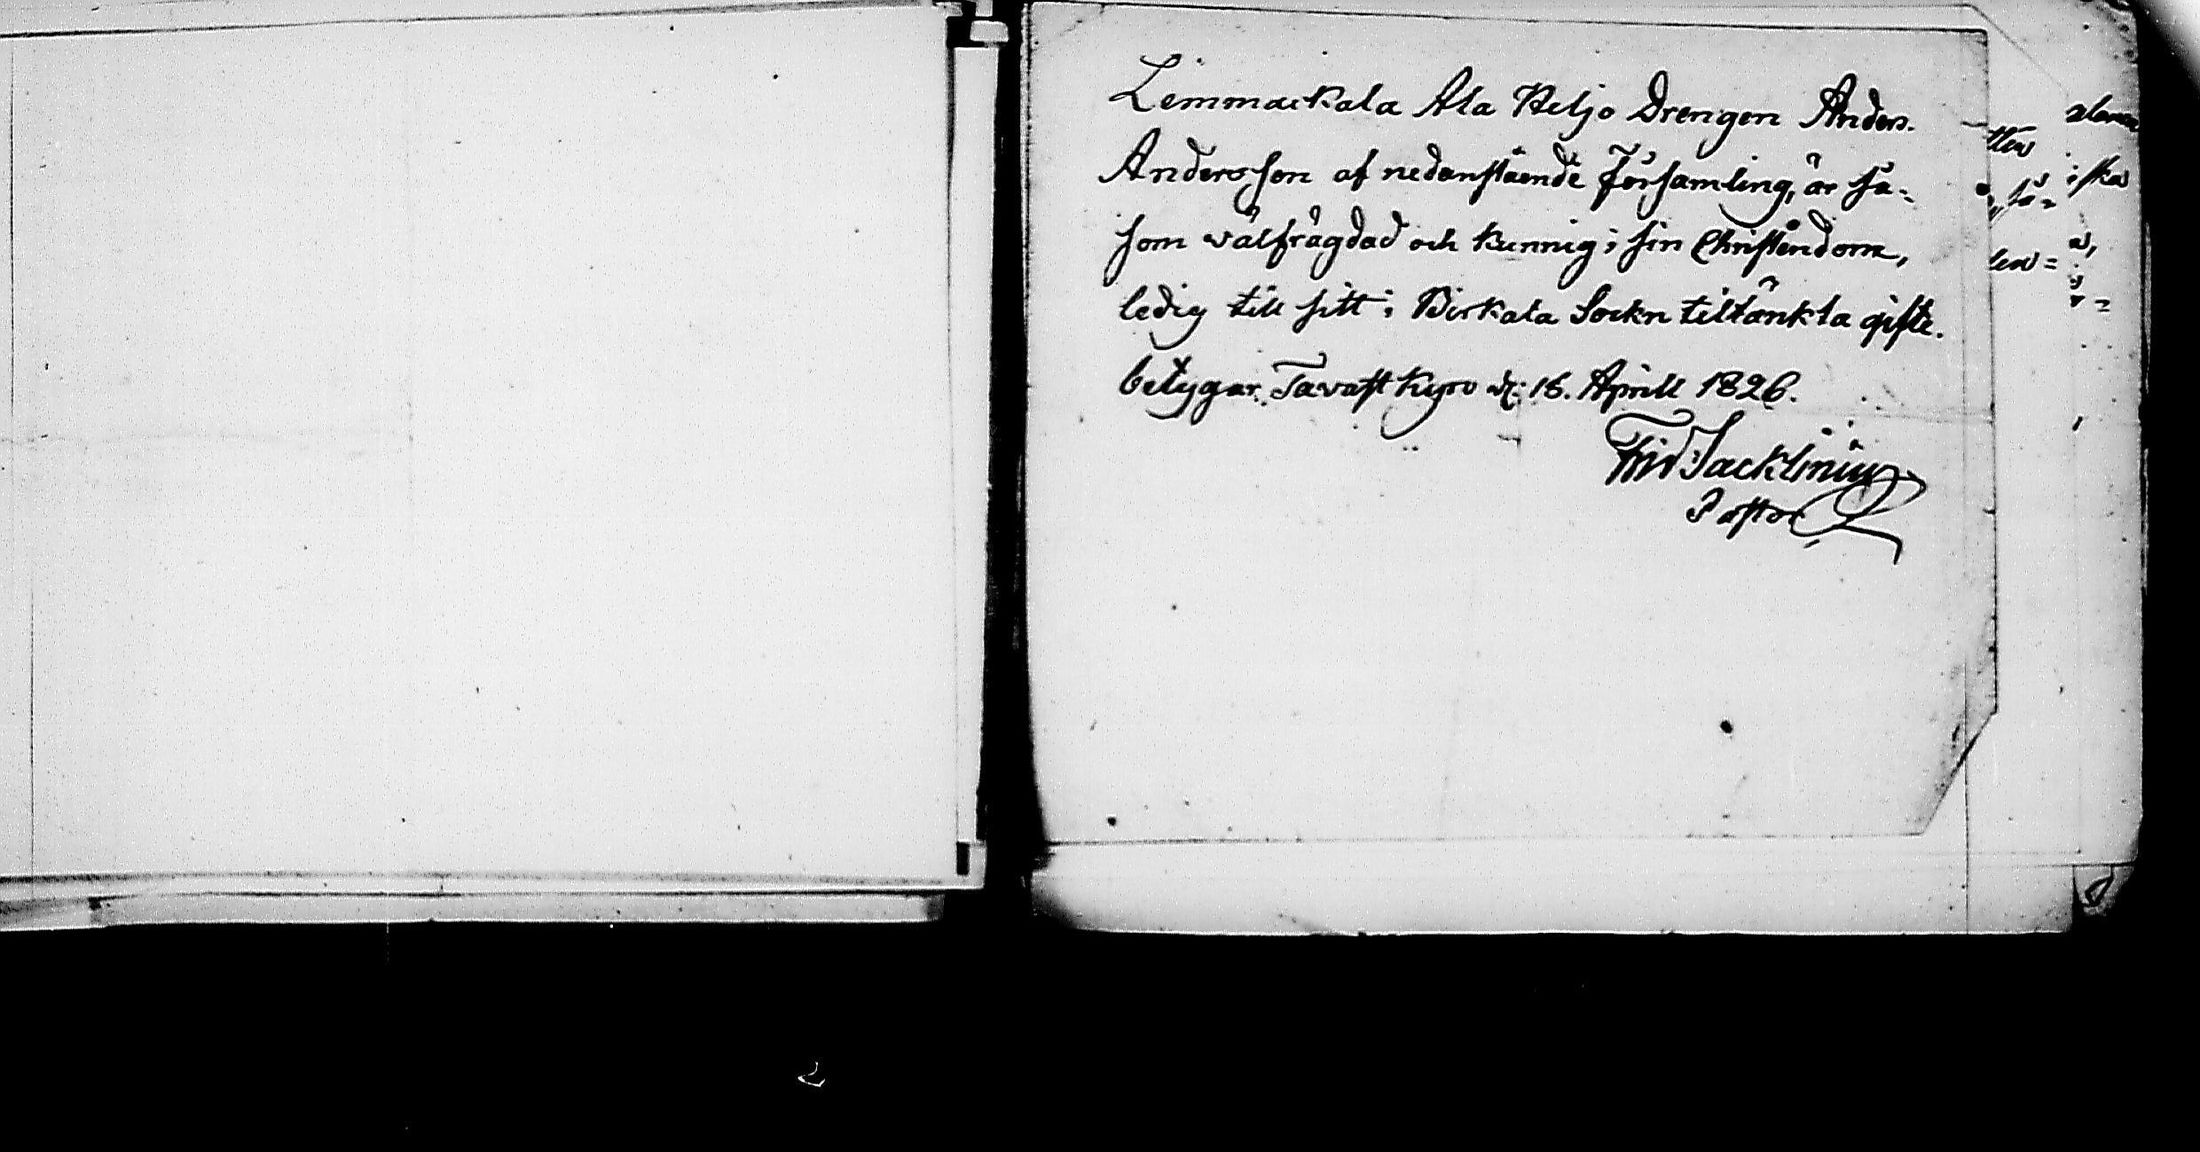 Lemmackala Ala Heljo Drengen Anders
Andersson af nedanstående Församling, är så-
som välfrägdad och kunnig i sin Christendom,
ledig till sitt i Birkala Sockn tiltänkta gifte.
betygar. Tavastkyro d. 16. Aprill 1826.
Jacklinius
Pastor